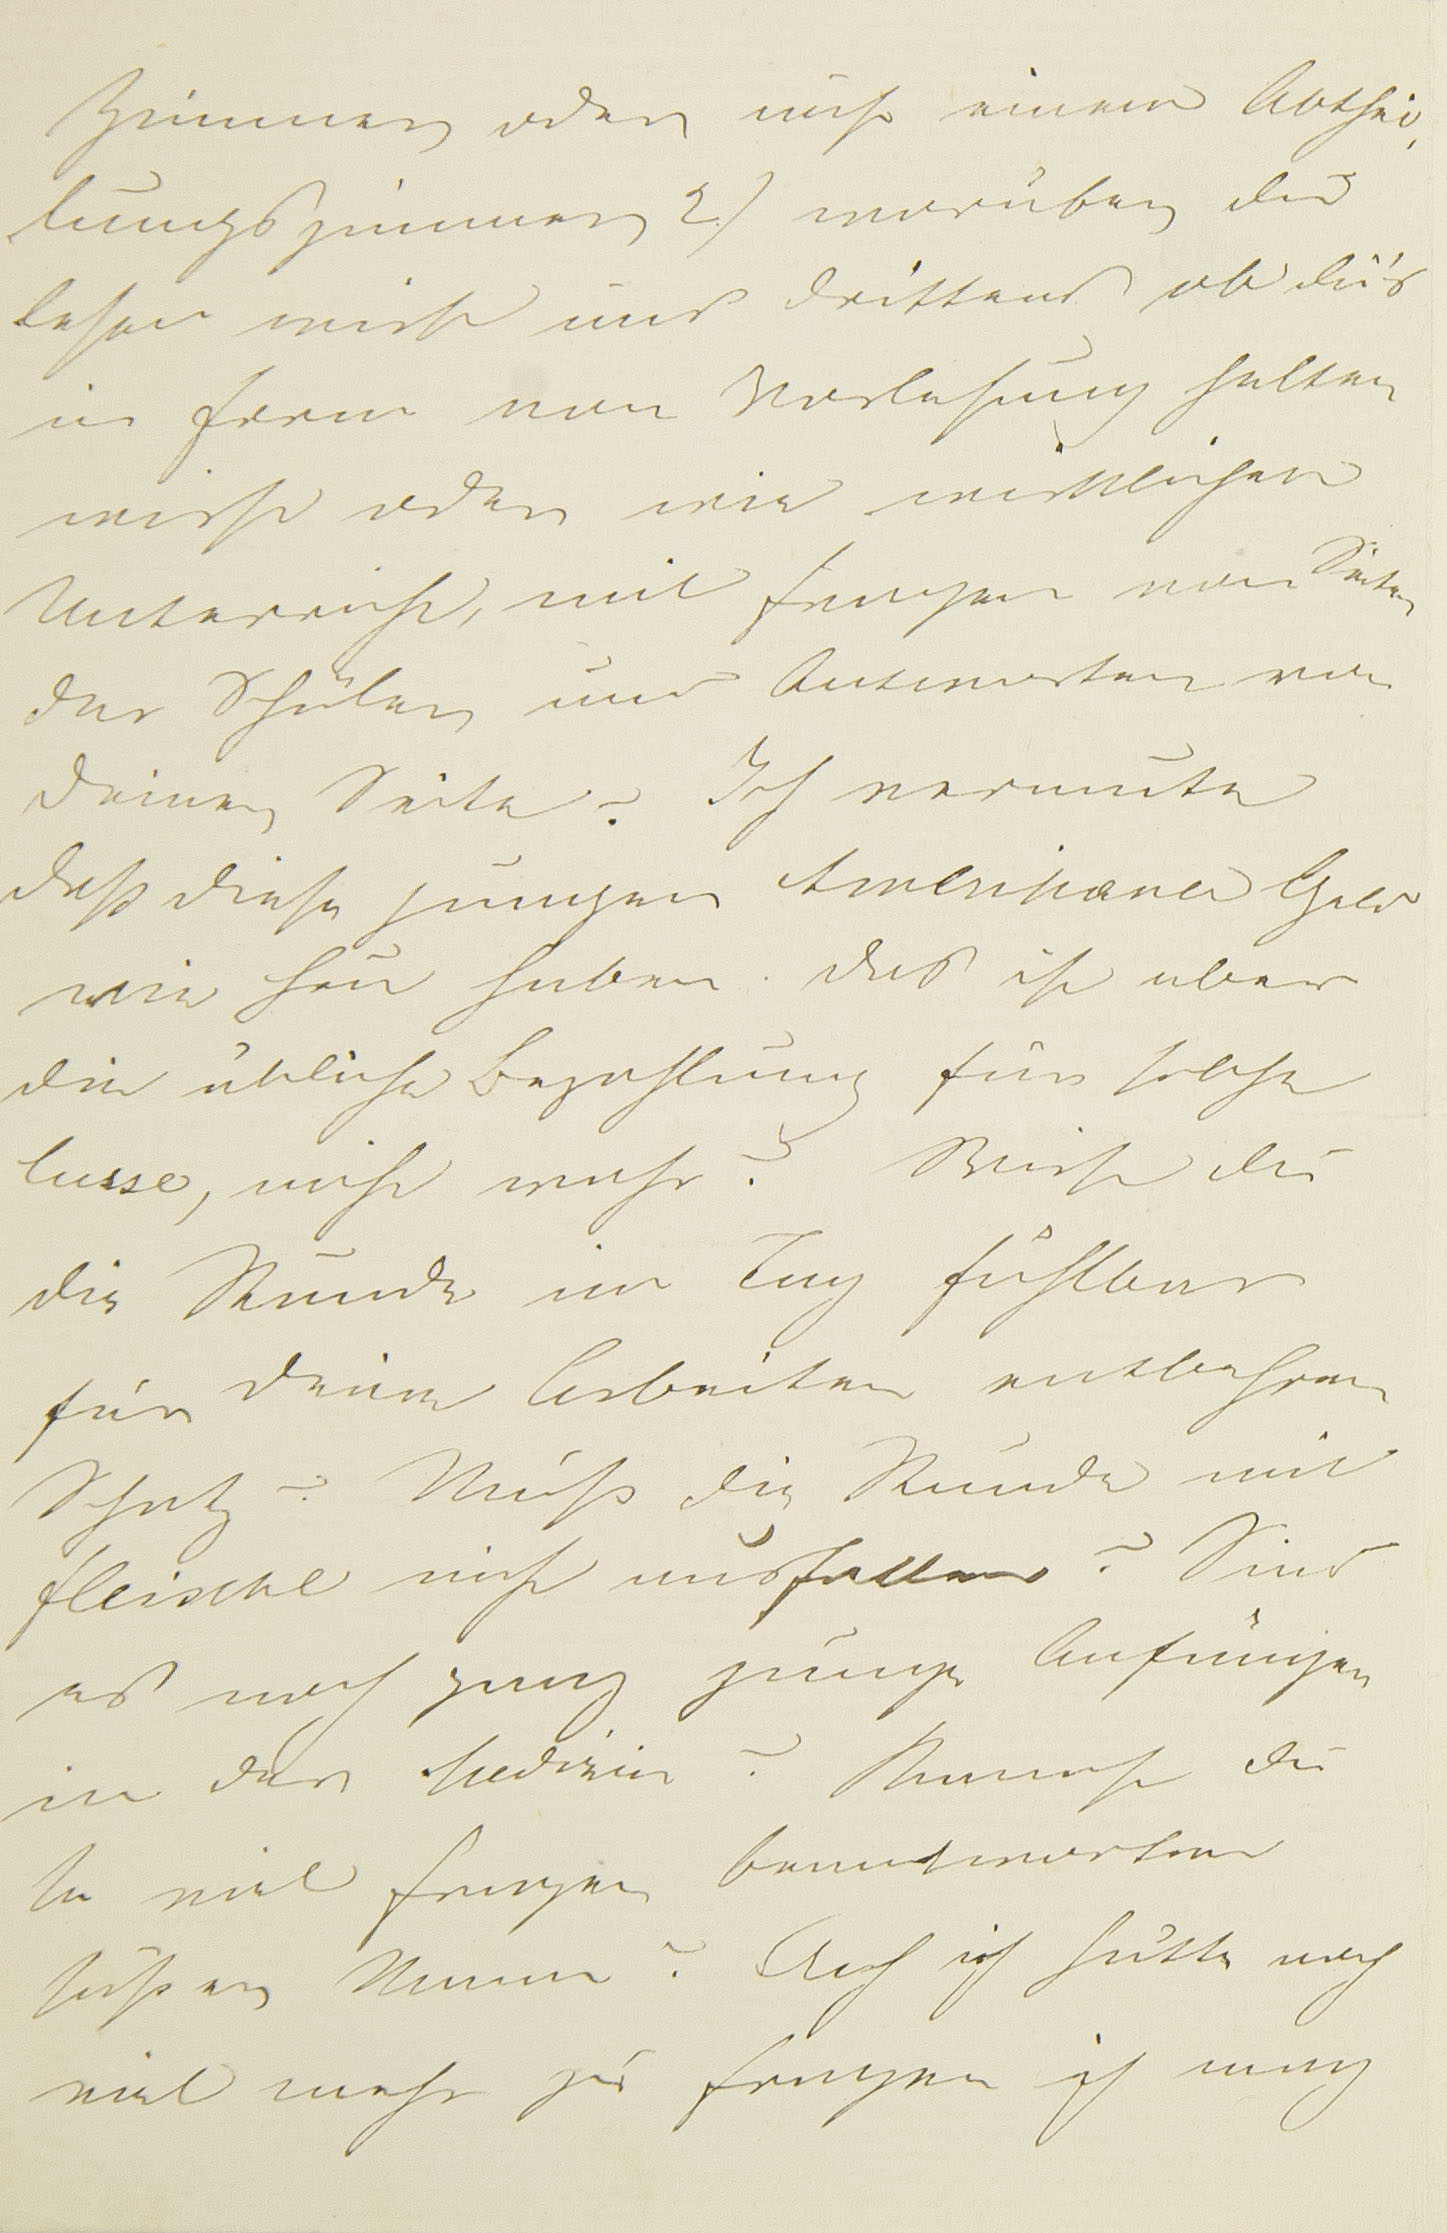 Zimmer oder auf einem Abthei-
lungszimmer, 2.) worüber du
lesen wirst und drittens ob du's
in Form von Vorlesung halten
wirst oder wie wirklichen
Unterricht, mit Fragen von Seiten
der Schüler und Antworten von
deiner Seite? Ich vermute
daß diese jungen Amerikaner Geld
wie Heu haben. das ist aber
die übliche Bezahlung für solche
Curse, nicht wahr? Wirst du
die Stunde im Tag fühlbar
für deine Arbeiten entbehren
Schatz? Muß die Stunde mit
Fleischl nicht ausfallen? Sind
es noch ganz junge Anfänger
in der Medizin? Kannst du
so viel Fragen beantworten
süßer Mann? Ach ich hätte noch
viel mehr zu fragen ich mag